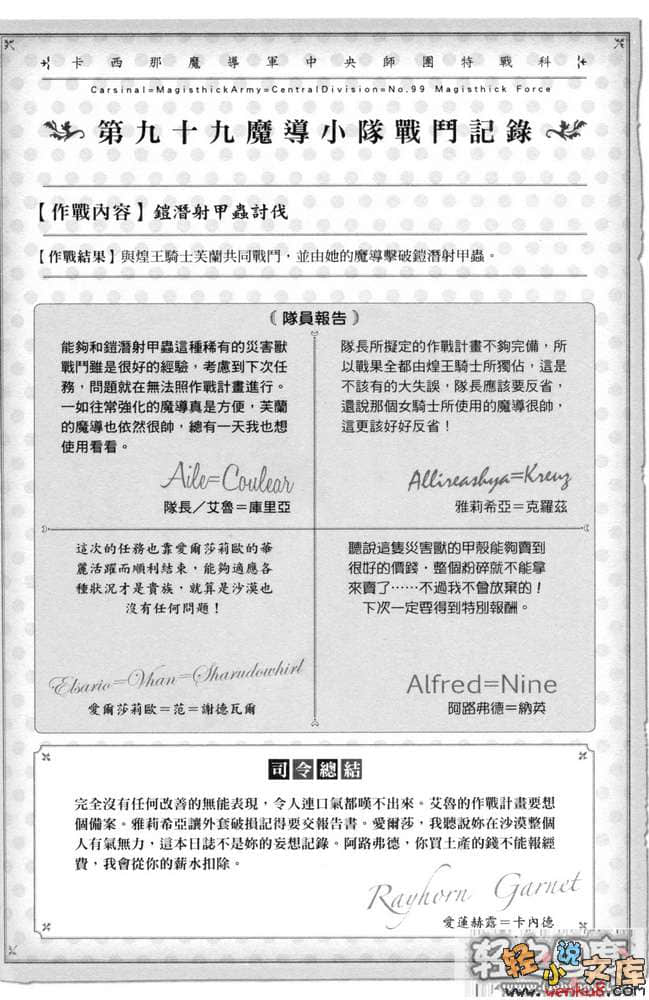 卡西那魔導軍中央師團特戰科
Carsinal=MagisthickArmy=CentralDivision=No.99 Magisthick Force
第九十九魔導小隊戰鬥記錄
【作戰內容】鎧潛射甲蟲討伐
【作戰結果】與煌王騎士芙蘭共同戰鬥,並由她的魔導擊破鎧潛射甲蟲。
《隊員報告》
能夠和鎧潛射甲蟲這種稀有的災害獸
戰鬥雖是很好的經驗,考慮到下次任
務,問題就在無法照作戰計畫進行。
一如往常強化的魔導真是方便,芙蘭
的魔導也依然很帥,總有一天我也想
使用看看。
Aile=Coulear
隊長/艾魯=庫里亞
隊長所擬定的作戰計畫不夠完備,所
以戰果全都由煌王騎士所獨佔,這是
不該有的大失誤,隊長應該要反省,
還說那個女騎士所使用的魔導很帥,
這更該好好反省!
Allireashya=Kreuz
雅莉希亞=克羅茲
這次的任務也靠愛爾莎莉歐的華
麗活躍而順利結束,能夠適應各
種狀況才是貴族,就算是沙漠也
沒有任何問題!
Elsario=Vhan=Sharudowhirl
愛爾莎莉歐=范=謝德瓦爾
聽說這隻災害獸的甲殼能夠賣到
很好的價錢,整個粉碎就不能拿
來賣了⋯⋯不過我不會放棄的!
下次一定要得到特別報酬。
Alfred=Nine
阿路弗德=納英
司令總結
完全沒有任何改善的無能表現,令人連口氣都嘆不出來。艾魯的作戰計畫要想
個備案。雅莉希亞讓外套破損記得要交報告書。愛爾莎,我聽說妳在沙漠整個
人有氣無力,這本日誌不是妳的妄想記錄。阿路弗德,你買土產的錢不能報經
費,我會從你的薪水扣除。
Rayhorn Garnet
愛蓮赫露=卡內德
轻小说文库
www.wenku8.com